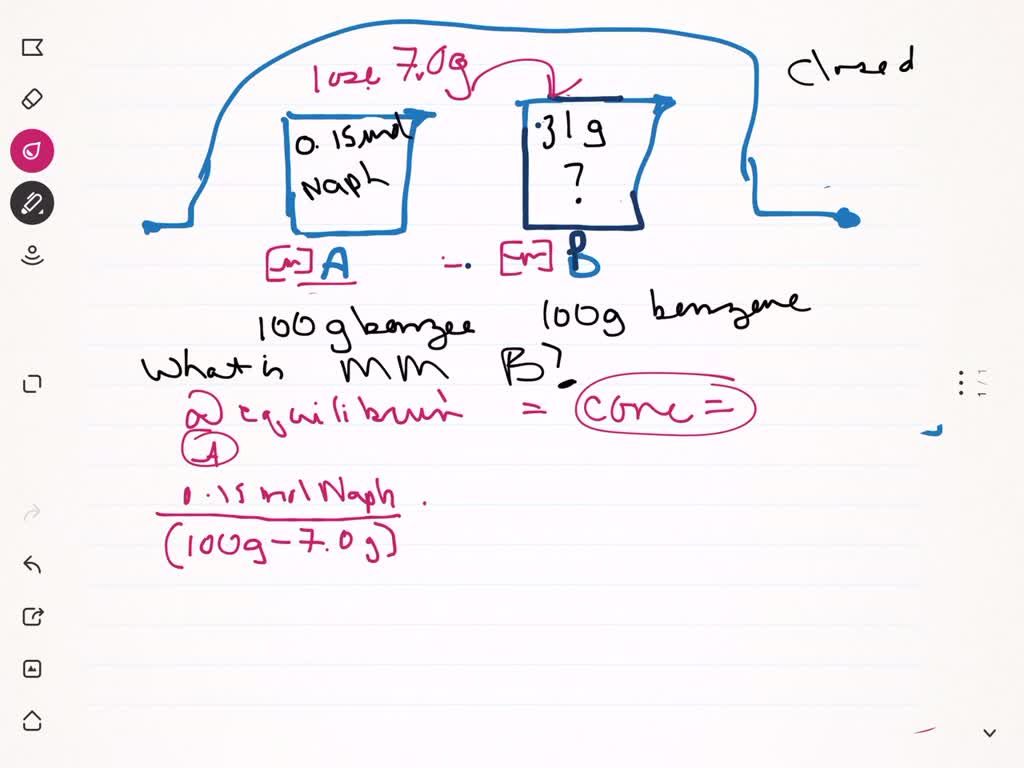 lose 7.0g
closed
0.15 mol
Naph
31g
?
[m] A = [m] B
100g benzee
100g benzene
What is MM B?
@ equilibrium = conc =
A
0.15 mol Naph
(100g - 7.0g)
1 / 1